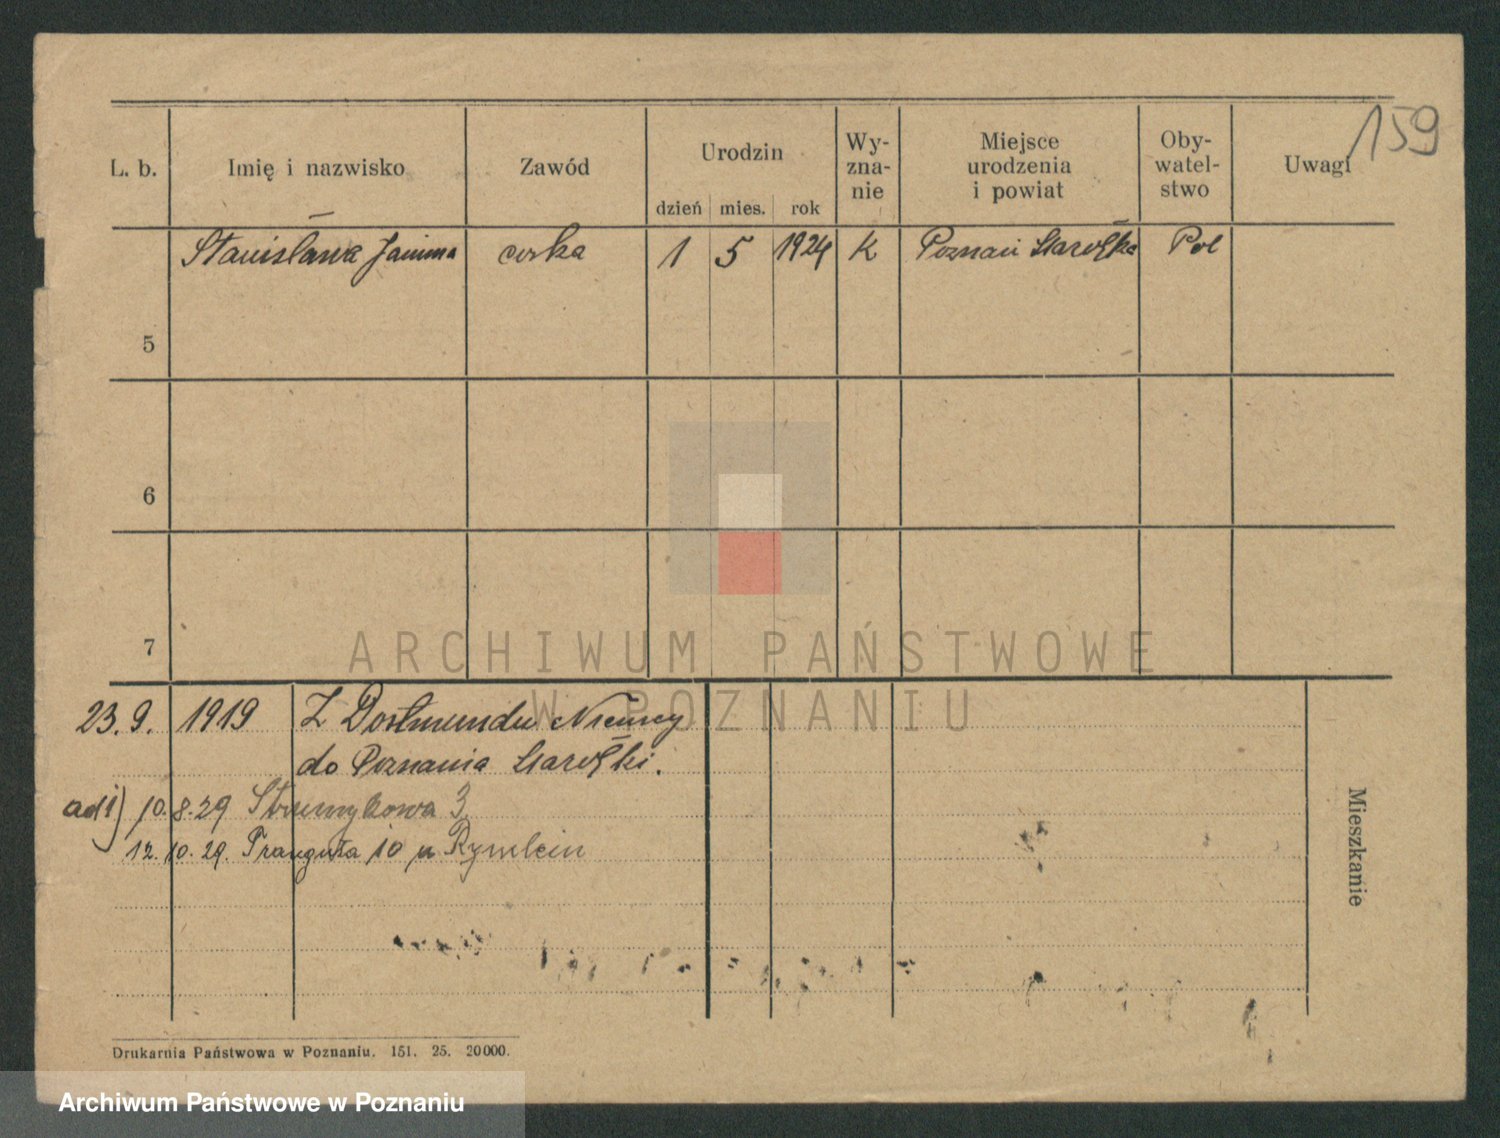 159
L. b. Imię i nazwisko Zawód Urodzin Wy-zna-nie Miejsce urodzenia i powiat Oby-watel-stwo Uwagi
dzień mies. rok
Stanisława Janina corka 1 5 1924 K Poznań Starołka Pol
5
6
7
ARCHIWUM PAŃSTWOWE
W POZNANIU
23. 9. 1919 Z Dortmundu Niemcy
do Poznania Starołki.
ad1) 10.8.29 Strumykowa 3
12.10.29. Trauguta 10 u Rymlein
Mieszkanie
Drukarnia Państwowa w Poznaniu. 151. 25. 20000.
Archiwum Państwowe w Poznaniu